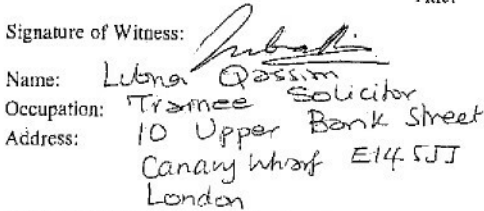 Signature of Witness:
Name: Lubna Qassim
Occupation: Trainee Solicitor
Address: 10 Upper Bank Street
Canary Wharf E14 5JJ
London